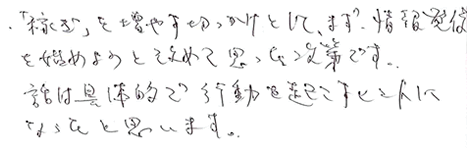 ・「稼ぎ」を増やす切っかけとして、まず、情報発信
を始めようと改めて思った次第です。
話は具体的で行動を起こすヒントに
なったと思います。